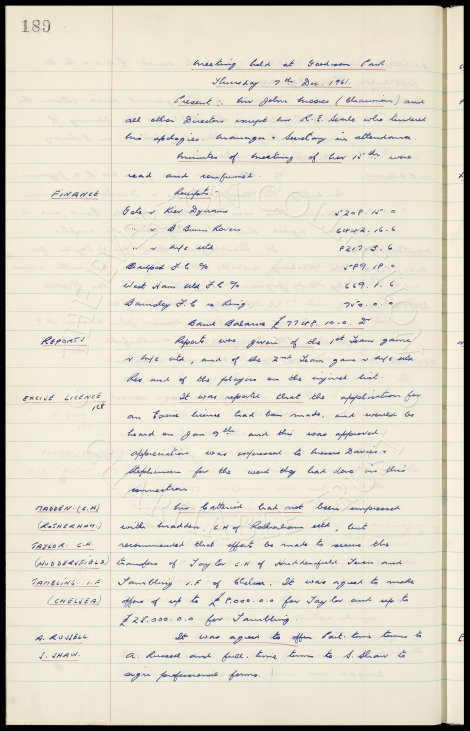 189
Meeting held at Goodison Park
Thursday 7th Dec. 1961.
Present :- Mr John Moores (Chairman) and
all other Directors except Mr R. E. Searle who tendered
his apologies. Manager & Secretary in attendance
Minutes of Meeting of Nov 15th were
read and confirmed.
FINANCE Receipts:-
Gate v Kiev Dynamo 5208. 15. 0
" v B'Burn Rovers 6442. 16. 6
" v M/c Utd 8217. 5. 6
Bradford F.C % 589. 18. 0
West Ham Utd F.C % 669. 1. 6
Barnsley F.C re Ring 750. 0. 0
Bank Balance £ 7748. 10. 0. Dr
REPORTS Reports was given of the 1st Team game
v M/c Utd, and of the 2nd Team game v M/c Utd
Res and of the players on the injured list.
EXCISE LICENCE It was reported that the application for
128 an Excise licence had been made, and would be
heard on Jan 9th and this was approved,
appreciation was expressed to Messrs Davies &
Stephenson for the work they had done in this
connection.
MADDEN. (C.H) Mr Catterick had not been impressed
(ROTHERHAM.) with Madden. C.H of Rotherham Utd, but
TAYLOR. C.H. recommended that efforts be made to secure the
(HUDDERSFIELD) transfers of Taylor C.H of Huddersfield Town and
TAMBLING. I.F Tambling I.F of Chelsea. It was agreed to make
(CHELSEA) offers of up to £ 8.000.0.0 for Taylor and up to
£ 25.000.0.0 for Tambling.
A. RUSSELL It was agreed to offer Part-time terms to
S. SHAW. A. Russell and full-time terms to S. Shaw to
sign professional forms.